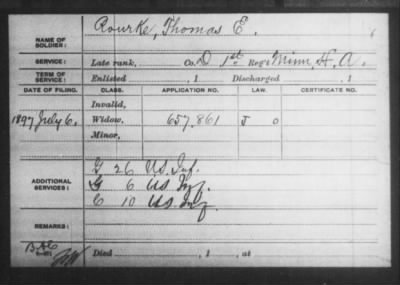 Rourke, Thomas E.
NAME OF SOLDIER:
SERVICE: Late rank, Co. D 1st Reg't Minn. H. A.
TERM OF SERVICE: Enlisted , 1 Discharged , 1
DATE OF FILING. CLASS. APPLICATION NO. LAW. CERTIFICATE NO.
Invalid,
1897 July 6. Widow, 657,861 J O
Minor,
ADDITIONAL SERVICES:
G 26 U.S. Inf.
G 6 U.S. Inf.
C 10 U.S. Inf.
REMARKS:
Died , 1 , at